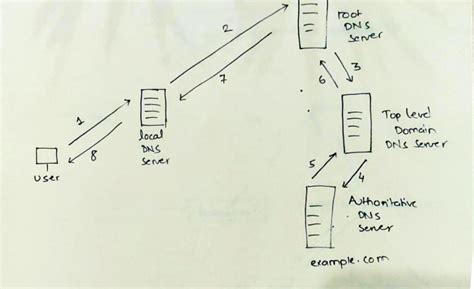 root
DNS
Server
2
7
3
6
1
8
local
DNS
Server
user
Top level
Domain
DNS Server
5
4
Authoritative
DNS
Server
example.com